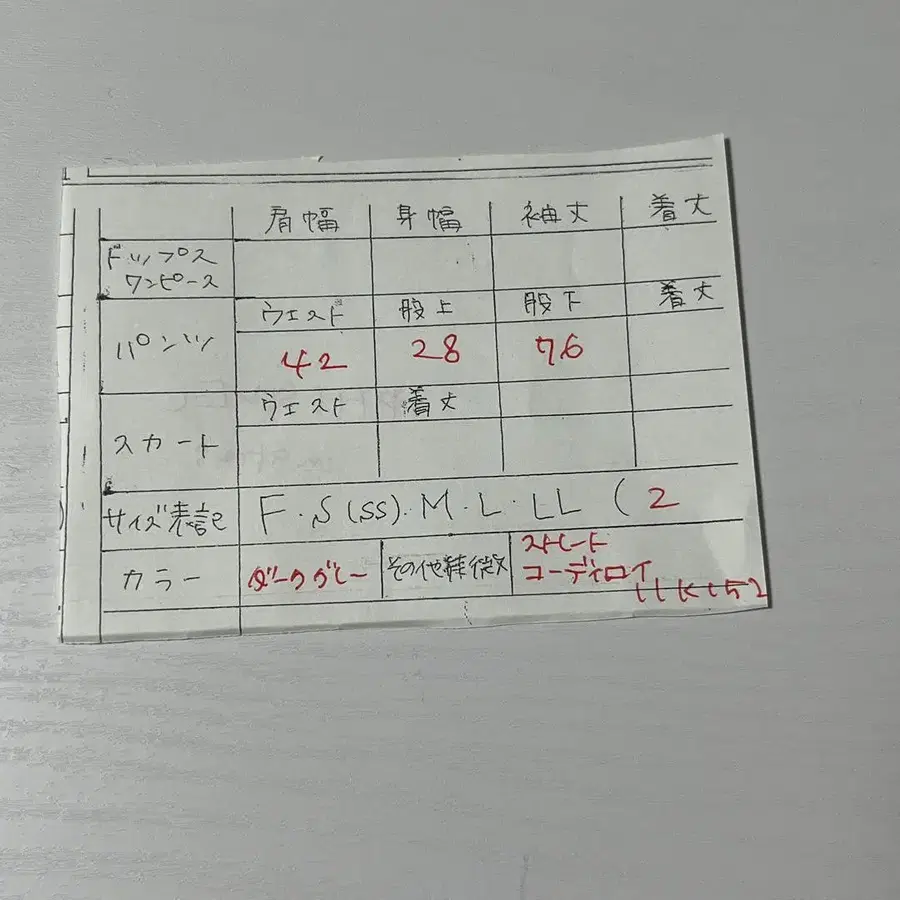 肩幅 身幅 袖丈 着丈
トップス
ワンピース
ウエスト 股上 股下 着丈
パンツ 42 28 76
ウエスト 着丈
スカート
サイズ表記 F・S(SS)・M・L・LL ( 2
カラー ダークグレー その他特徴 ストレート
コーディロイ